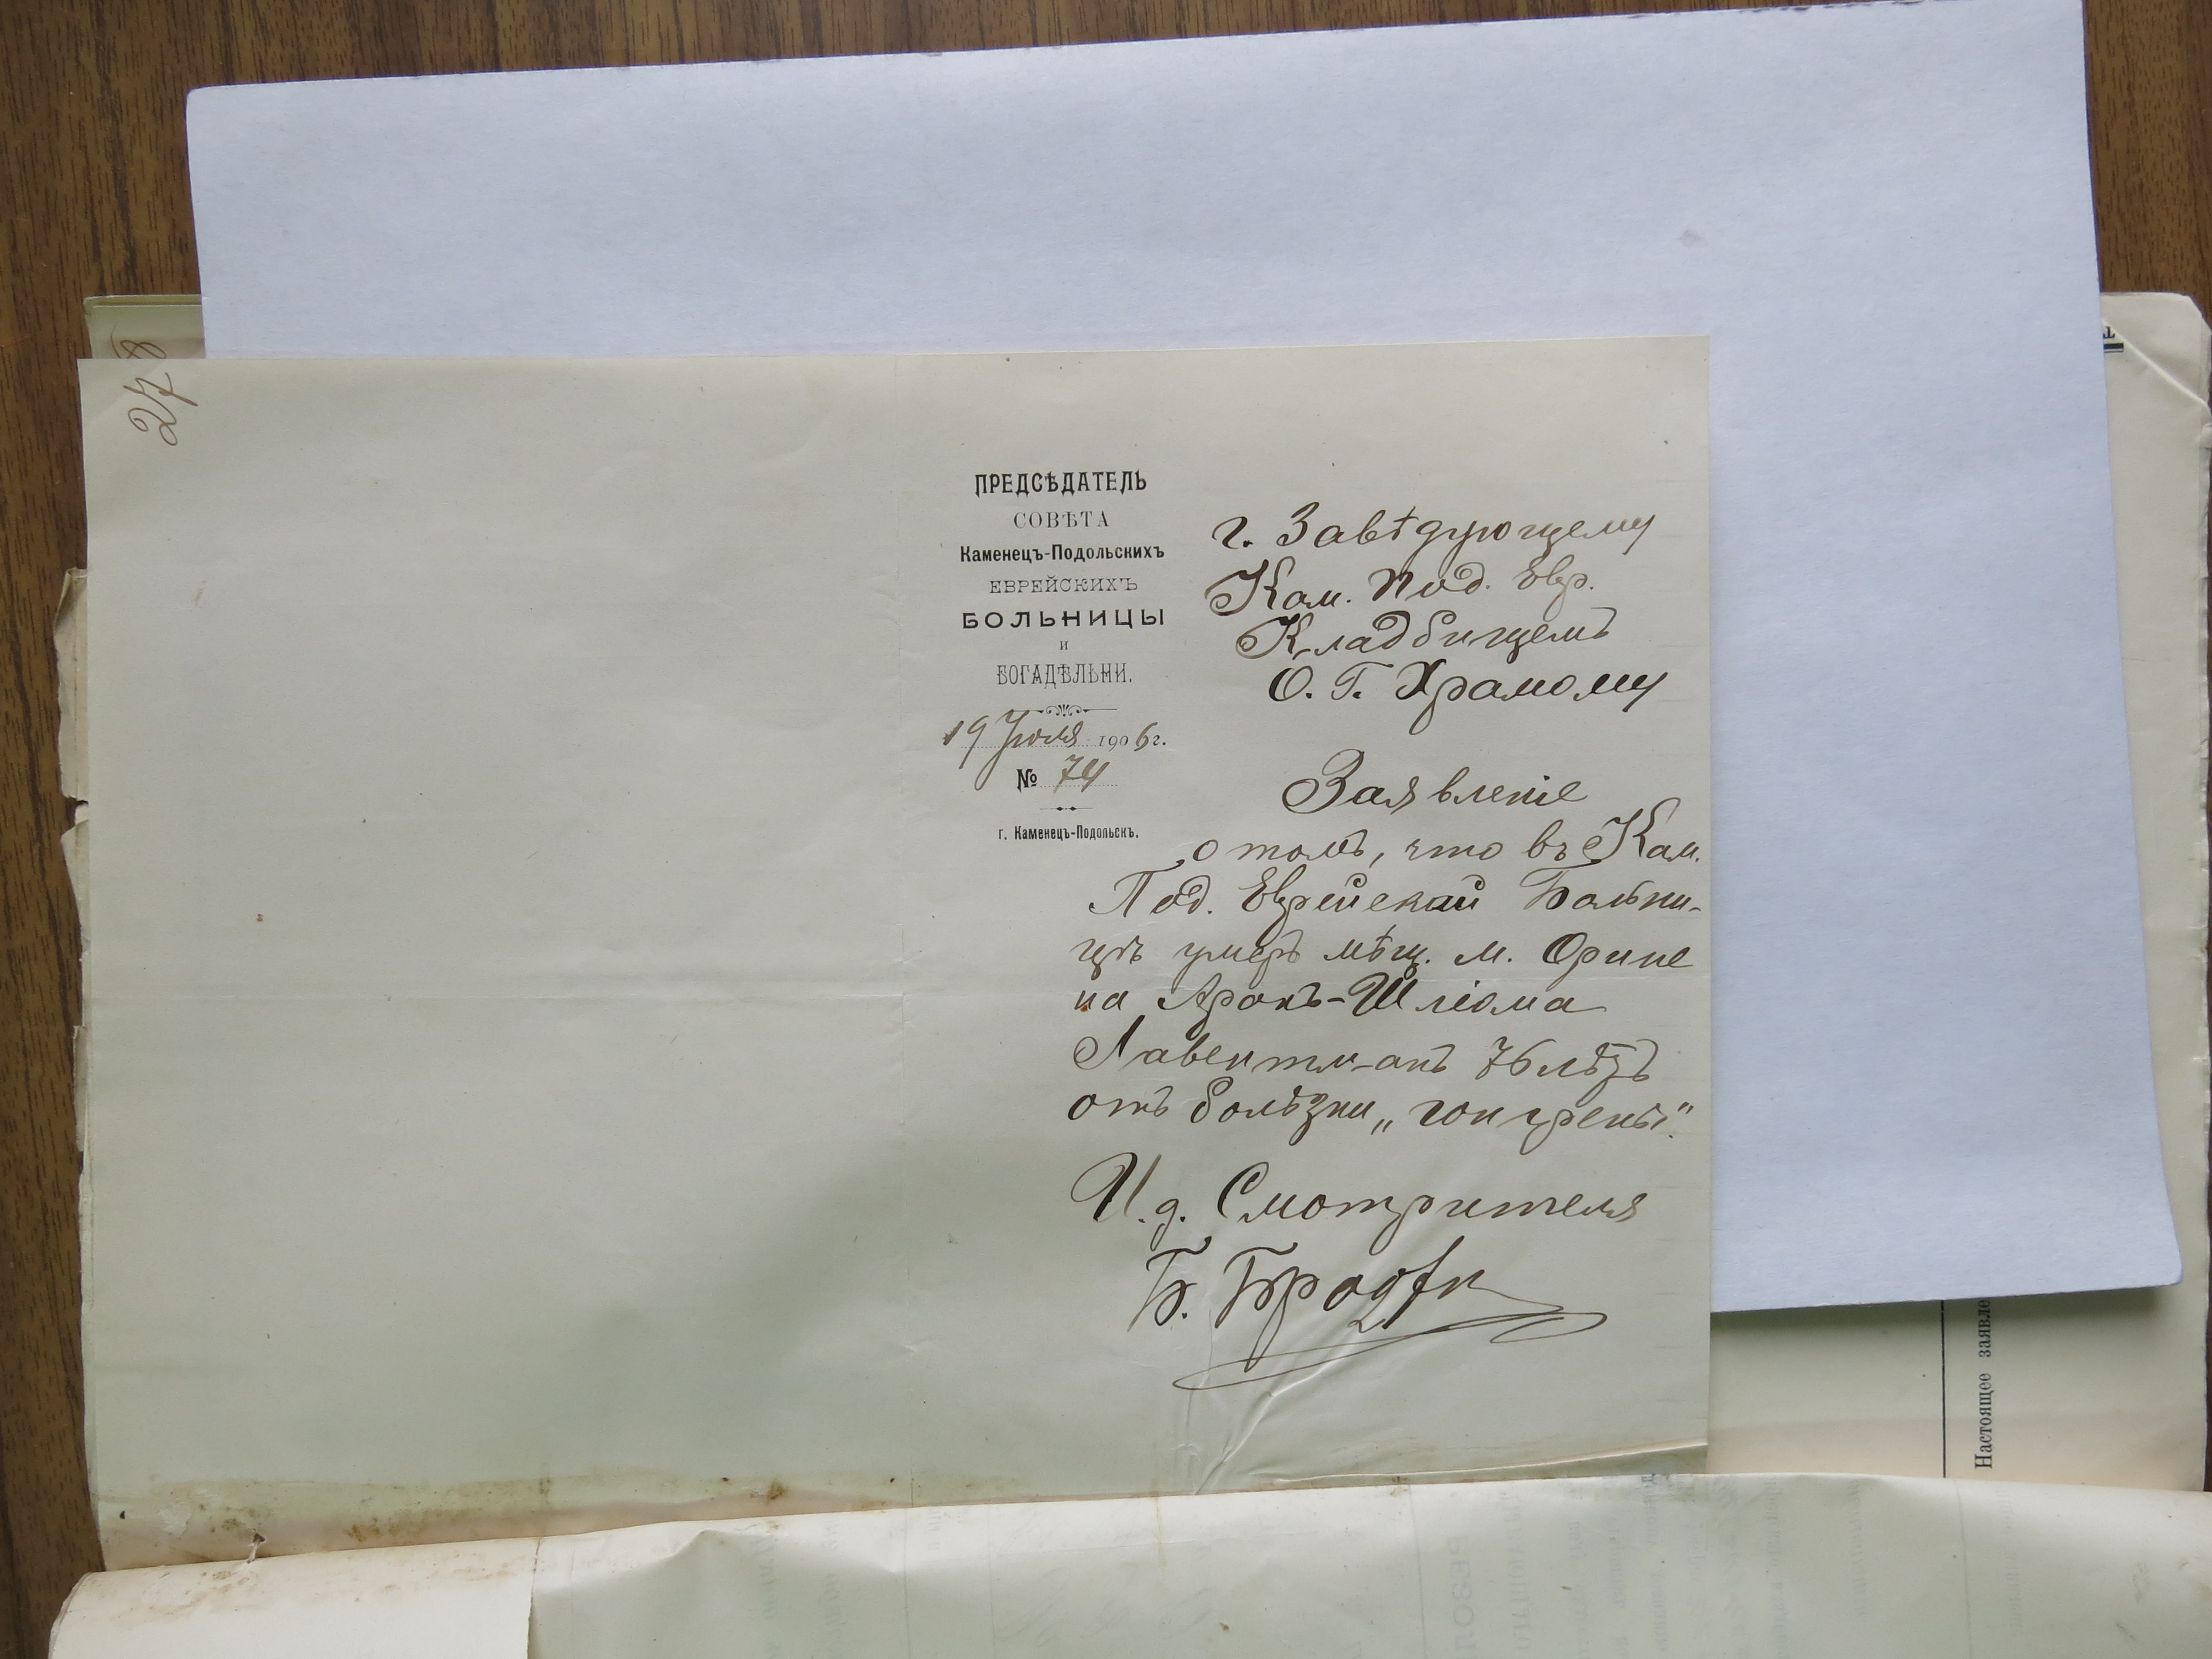 278
ПРЕДСѢДАТЕЛЬ
СОВѢТА
Каменецъ-Подольскихъ
ЕВРЕЙСКИХЪ
БОЛЬНИЦЫ
и
БОГАДѢЛЬНИ.
19 Июля 1906 г.
№ 74
г. Каменецъ-Подольскъ.
г. Завѣдующему
Кам. Под. Евр.
Кладбищемъ
О. Г. Храмому
Заявленіе
о томъ, что въ Кам.
Под. Еврейской Больни-
цѣ умеръ мѣщ. м. Орине
на Аронъ-Шліома
Лавентманъ 76 лѣтъ
отъ болѣзни „гонгрены".
И. д. Смотрителя
Б.
Настоящее заявле